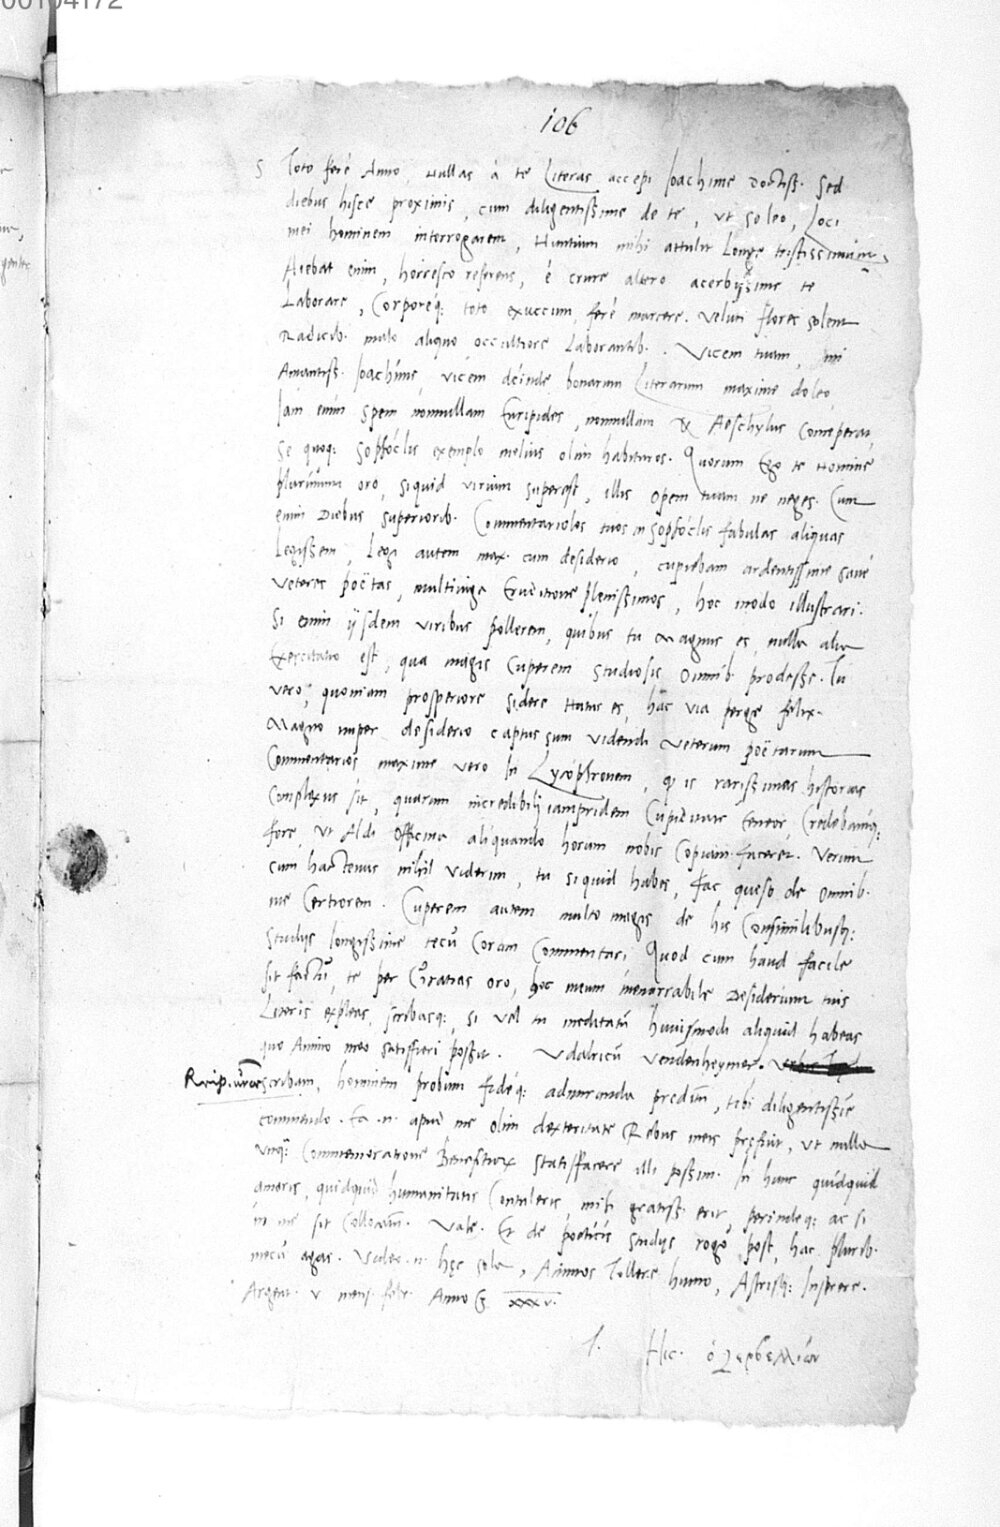 00104172
106
S Toto ferè Anno, nullas à te Literas accepi Joachime Doctiss. Sed
diebus hisce proximis, cum diligentissime de te, vt soleo, Loci
mei hominem interrogarem, Nuntium mihi attulit Longe tristissimum,
Aiebat enim, horresco referens, è crure altero acerbissime te
Laborare, Corporeq; toto exuccum ferè marcere. Veluti flores solent
Radicib. malo aliquo occultiore Laborantib. Vicem tuam, mi
Amantiss. Joachime, vicem deinde bonarum Literarum maxime doleo,
Jam enim spem nonnullam Euripides, nonnullam & Aeschylus conceperat,
se quoq; Sophoclis exemplo melius olim habituros. Quorum Ego te Nomine
plurimum oro, siquid virium superest, illis opem tuam ne neges. Cum
enim Diebus superiorib. Commentariolos tuos in Sophoclis fabulas aliquas
Legissem, Legi autem max. cum desiderio, cupiebam ardentissime sanè
Veteres poëtas, multiiuga Eruditione plenissimos, hoc modo illustrari.
Si enim ijsdem viribus pollerem, quibus tu Magnus es, nulla alia
Exercitatio est, qua magis Cuperem studiosis omnib. prodesse. Tu
vero, quoniam prosperiore sidere natus es, hac via perge felix.
Magno nuper desiderio captus sum videndi veterum poëtarum
Commentarios maxime vero in Lycophronem, q is rarissimas historias
Complexus sit, quarum incredibilj iampridem Cupiditate teneor, Credebamq;
fore, vt Aldi officina aliquando horum nobis Copiam faceret. Verum
cum hactenus nihil viderim, tu siquid habes, fac queso de omnib.
me Certiorem. Cuperem autem multo magis de his Consimilibusq;
studijs longissime tecū Coram Commentari. Quod cum haud facile
sit factū, te per Gratias oro, hoc meum inenarrabile Desiderium tuis
Literis expleas, scribasq; si vel tu meditatū huiusmodi aliquid habeas
quo Animo meo satisfieri possit. Vdalricū Vendenheymer.
scribam, hominem probum fideq; admiranda preditū, tibi diligentissie
commendo. Ea .n. apud me olim dexteritate Rebus meis prefuit, vt nulla
vnq; Commemoratione satisfacere illi possim. In hunc quidquid
amoris, quidquid humanitatis Contuleris, mihi gratiss. erit, perindeq; ac si
in me sit Collocatū. Vale. Et de poëticis studijs rogo post hac plurib.
mecū agas. Video .n. hęc sola, Animos Tollere humo, Astrisq; Inserere.
Argent. v mens. febr. Anno xxxv.
T. Nic. ὁ Γερβελλιών